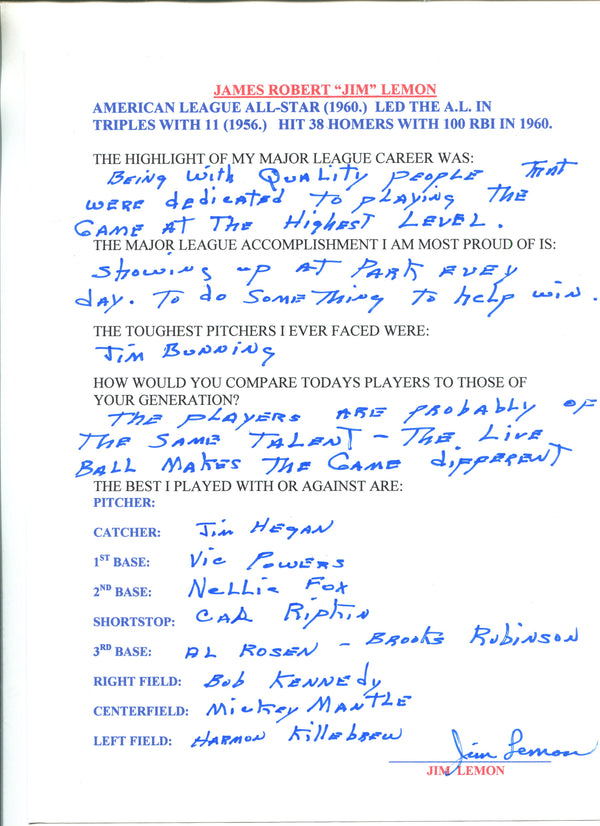 JAMES ROBERT “JIM” LEMON
AMERICAN LEAGUE ALL-STAR (1960.) LED THE A.L. IN
TRIPLES WITH 11 (1956.) HIT 38 HOMERS WITH 100 RBI IN 1960.
THE HIGHLIGHT OF MY MAJOR LEAGUE CAREER WAS:
Being with Quality people that
were dedicated to playing the
Game at the Highest Level.
THE MAJOR LEAGUE ACCOMPLISHMENT I AM MOST PROUD OF IS:
Showing up at Park evey
day. To do something to help win.
THE TOUGHEST PITCHERS I EVER FACED WERE:
Jim Bunning
HOW WOULD YOU COMPARE TODAYS PLAYERS TO THOSE OF
YOUR GENERATION?
The players are probably of
the same talent – The Live
Ball makes the Game different
THE BEST I PLAYED WITH OR AGAINST ARE:
PITCHER:
CATCHER: Jim Hegan
1ST BASE: Vic Powers
2ND BASE: Nellie Fox
SHORTSTOP: Cal Ripkin
3RD BASE: Al Rosen – Brooks Robinson
RIGHT FIELD: Bob Kennedy
CENTERFIELD: Mickey Mantle
LEFT FIELD: Harmon Killebrew
Jim Lemon
JIM LEMON